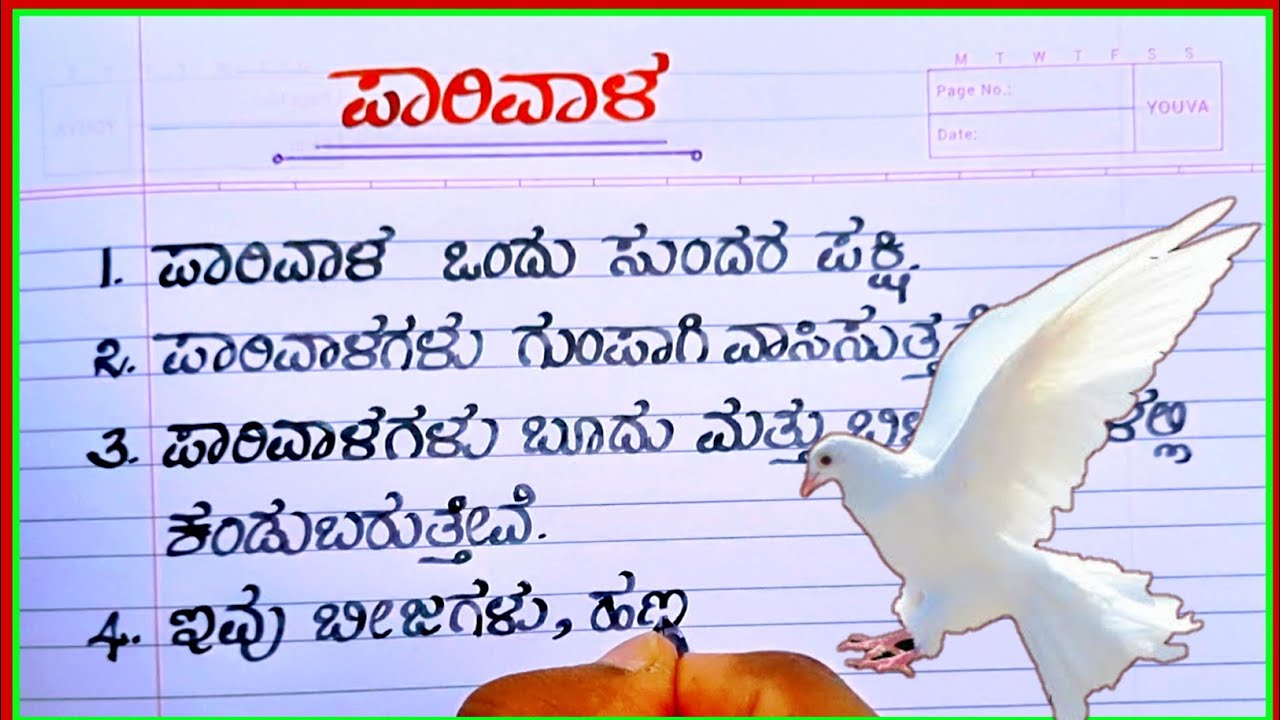 ಪಾರಿವಾಳ
M T W T F S S
Page No.:
YOUVA
Date:
1. ಪಾರಿವಾಳ ಒಂದು ಸುಂದರ ಪಕ್ಷಿ.
2. ಪಾರಿವಾಳಗಳು ಗುಂಪಾಗಿ
3. ಪಾರಿವಾಳಗಳು ಬೂದು ಮತ್ತು
ಕಂಡುಬರುತ್ತೇವೆ.
4. ಇವು ಬೀಜಗಳು,